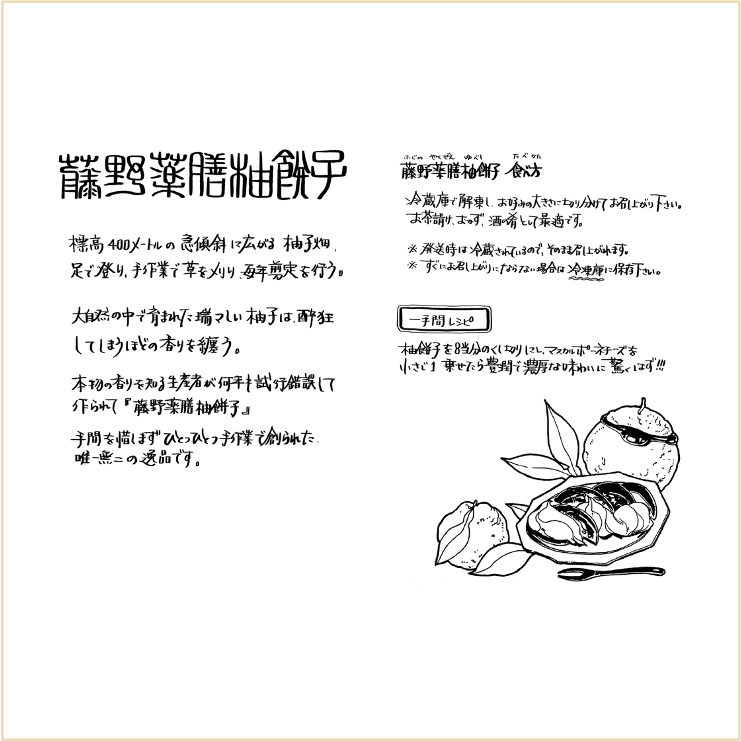 藤野薬膳柚餅子
標高400メートルの急傾斜に広がる柚子畑、
足で登り、手作業で草を刈り、毎年剪定を行う。
大自然の中で育まれた瑞々しい柚子は、酔狂
してしまうほどの香りを纏う。
本物の香りを知る生産者が何年も試行錯誤して
作られて『藤野薬膳柚餅子』
手間を惜しまずひとつひとつ手作業で創られた、
唯一無二の逸品です。
ふじの やくぜん ゆべし たべかた
藤野薬膳柚餅子 食べ方
冷蔵庫で解凍し、お好みの大きさに切り分けてお召し上がり下さい。
お茶請け、おかず、酒の肴として最適です。
※ 発送時は冷蔵されているので、そのまま召し上がれます。
※ すぐにお召し上がりにならない場合は冷凍庫に保存下さい。
一手間レシピ
柚餅子を8等分のくし切りにし、マスカルポーネチーズを
小さじ1 乗せたら豊潤で濃厚な味わいに驚くはず!!!